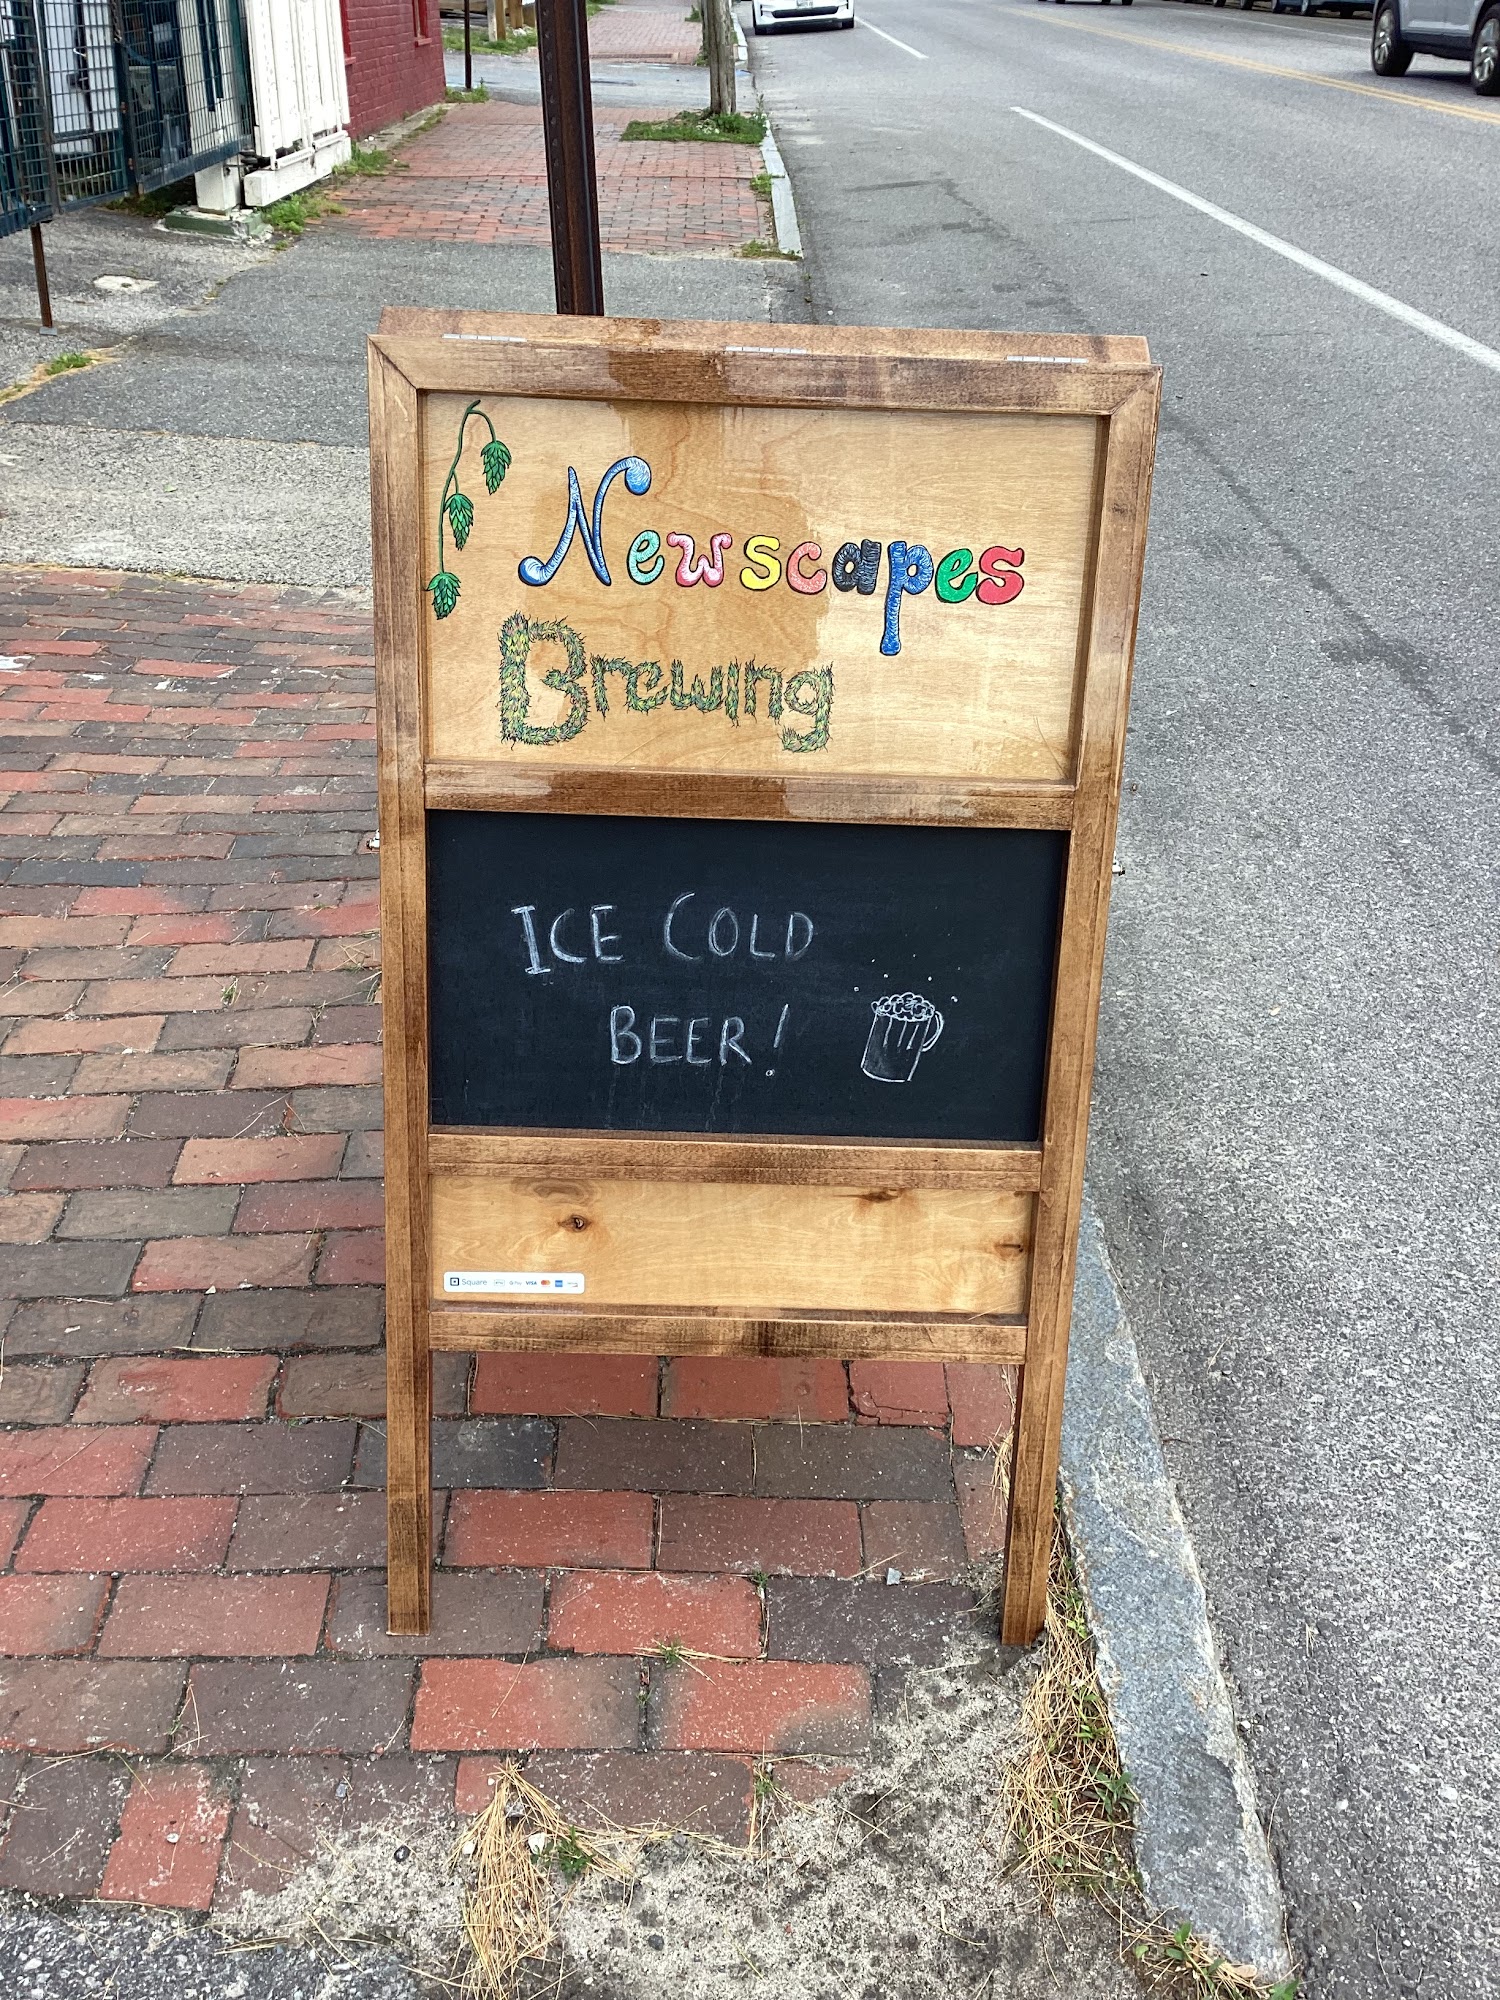 Newscapes
Brewing
ICE COLD
BEER!
Square
VISA